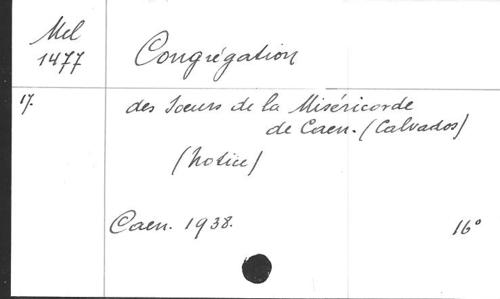 Mel
1477
Congrégation
17.
des Soeurs de la Miséricorde
de Caen. (Calvados)
(Notice)
Caen. 1938.
16°